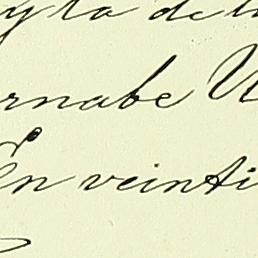 yta de
rnabe
En veinti